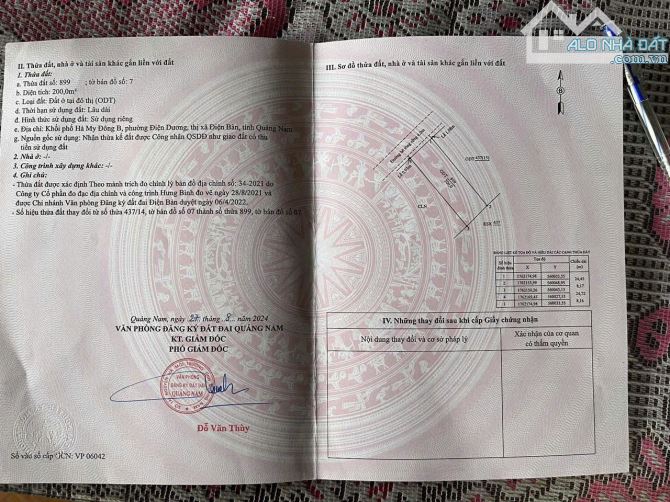 ALO NHÀ ĐẤT
.com.vn
II. Thửa đất, nhà ở và tài sản khác gắn liền với đất
1. Thửa đất:
a. Thửa đất số: 899 ; tờ bản đồ số: 7
b. Diện tích: 200,0m²
c. Loại đất: Đất ở tại đô thị (ODT)
d. Thời hạn sử dụng đất: Lâu dài
đ. Hình thức sử dụng đất: Sử dụng riêng
e. Địa chỉ: Khối phố Hà My Đông B, phường Điện Dương, thị xã Điện Bàn, tỉnh Quảng Nam
g. Nguồn gốc sử dụng: Nhận thừa kế đất được Công nhận QSDĐ như giao đất có thu
tiền sử dụng đất
2. Nhà ở: -/-
3. Công trình xây dựng khác: -/-
4. Ghi chú:
- Thửa đất được xác định Theo mảnh trích đo chỉnh lý bản đồ địa chính số: 34-2021 do
Công ty Cổ phần đo đạc địa chính và công trình Hưng Bình đo vẽ ngày 28/8/2021 và
được Chi nhánh Văn phòng Đăng ký đất đai Điện Bàn duyệt ngày 06/4/2022.
- Số hiệu thửa đất thay đổi từ số thửa 437/14, tờ bản đồ số 07 thành số thửa 899, tờ bản đồ số 07
Quảng Nam, ngày 27 tháng 8 năm 2024
VĂN PHÒNG ĐĂNG KÝ ĐẤT ĐAI QUẢNG NAM
KT. GIÁM ĐỐC
PHÓ GIÁM ĐỐC
VĂN PHÒNG
ĐĂNG KÝ ĐẤT ĐAI
QUẢNG NAM
Đỗ Văn Thùy
Số vào sổ cấp GCN: VP 06042
III. Sơ đồ thửa đất, nhà ở và tài sản khác gắn liền với đất
B
CLN
BẢNG LIỆT KÊ TỌA ĐỘ VÀ CHIỀU DÀI CÁC CẠNH THỬA ĐẤT
Số hiệu đỉnh thửa
Tọa độ
Chiều dài (m)
X Y
IV. Những thay đổi sau khi cấp Giấy chứng nhận
Nội dung thay đổi và cơ sở pháp lý
Xác nhận của cơ quan
có thẩm quyền